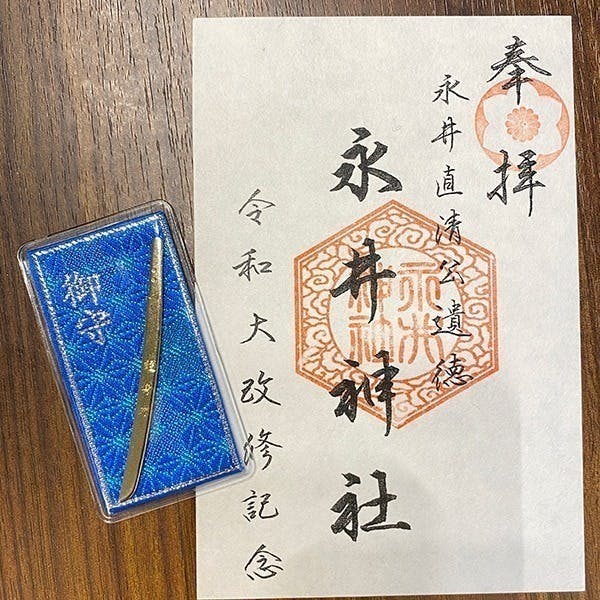 奉拝
永井直清公遺徳
永井神社
令和大改修記念
御守